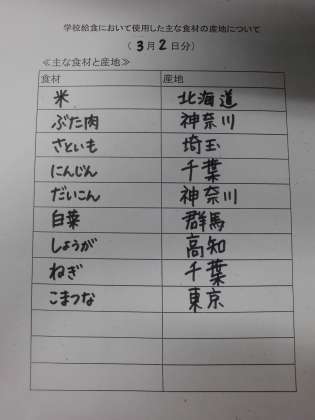 学校給食において使用した主な食材の産地について
(3月2日分)
≪主な食材と産地≫
食材 産地
米 北海道
ぶた肉 神奈川
さといも 埼玉
にんじん 千葉
だいこん 神奈川
白菜 群馬
しょうが 高知
ねぎ 千葉
こまつな 東京